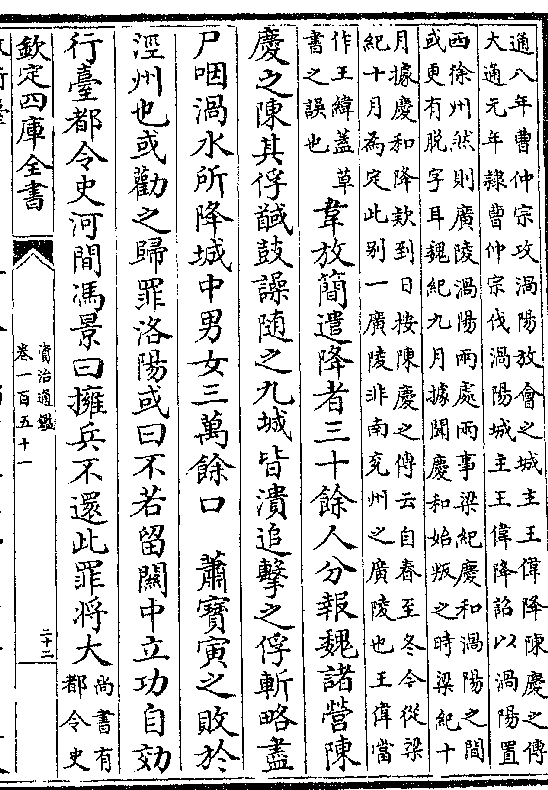 通八年曹仲宗攻渦陽放會之城主王偉降陳慶之傳
大通元年隷曹仲宗伐渦陽城主王偉降詔以渦陽置
西徐州然則廣陵渦陽兩處兩事梁紀慶和渦陽之間
或更有脱字耳魏紀九月據聞慶和始叛之時梁紀十
月據慶和降欵到日按陳慶之傳云自春至冬今從梁
紀十月為定此别一廣陵非南兖州之廣陵也王偉當
作王緯蓋草
書之誤也
韋放簡遣降者三十餘人分報魏諸營陳
慶之陳其俘馘鼓譟隨之九城皆潰追擊之俘斬略盡
尸咽渦水所降城中男女三萬餘口　蕭寶寅之敗於
涇州也或勸之歸罪洛陽或曰不若留關中立功自効
行臺都令史河間馮景曰擁兵不還此罪将大
尚書有
都令史
欽定四庫全書
資治通鑑
卷一百五十一
二十三